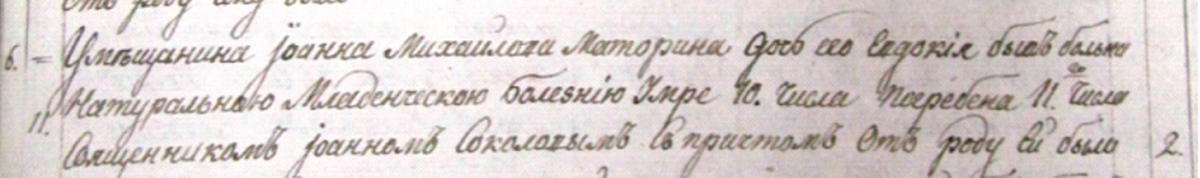 отъ роду ему было
6. = У мѣщанина Іоанна Михайлова Маторина дочь его Евдокія бывъ больна
Натуральною Младенческою болезнію Умре 10. числа Погребена 11. го Числа
11. Священникомъ Іоанномъ Соколовымъ Съ причтомъ Отъ роду Ей было 2.